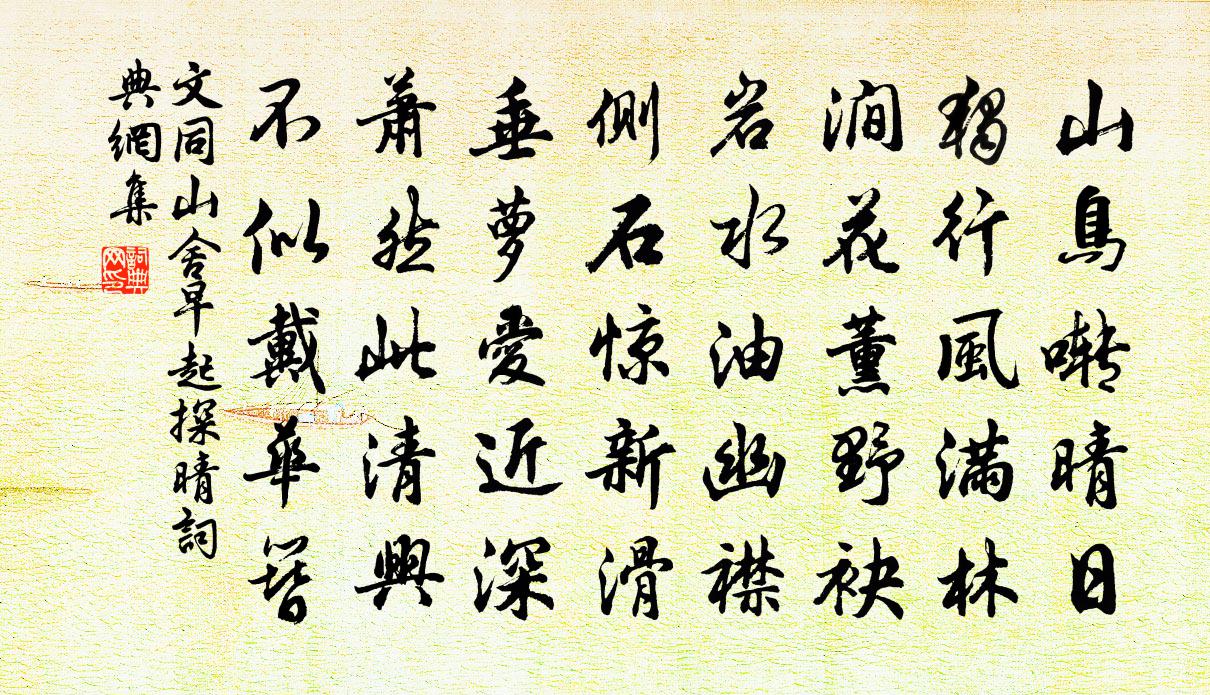 山鳥囀晴日
獨行風滿林
澗花薰野袂
岩水油幽襟
側石惊新滑
垂萝愛近深
蕭然此清興
不似戴華簪
文同山舍早起探晴詞
典網集
詞典网印